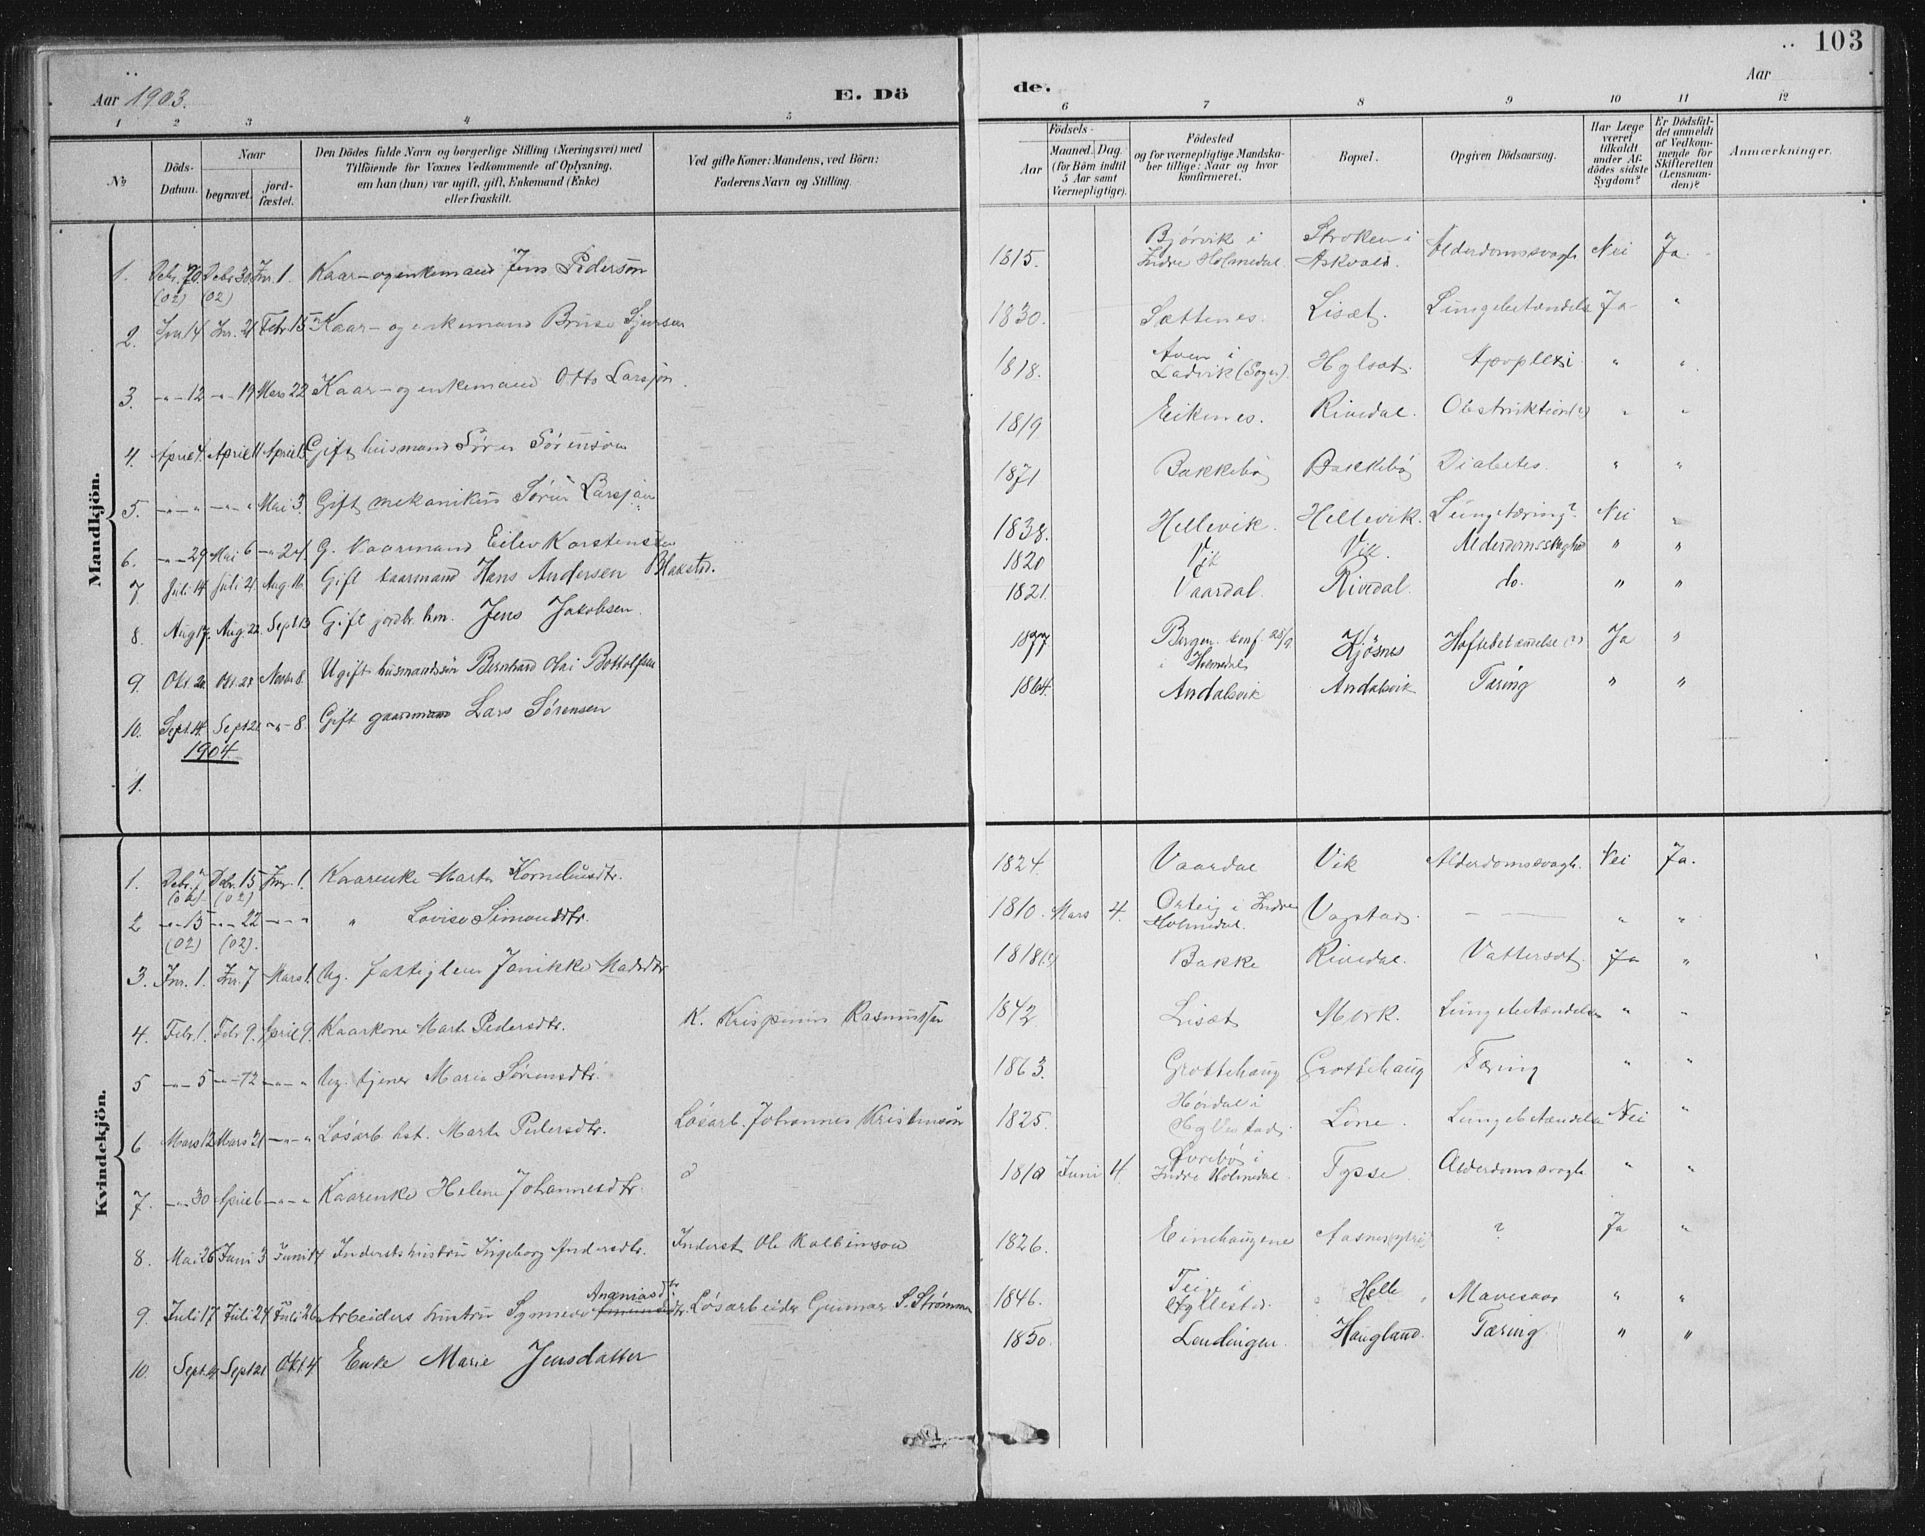 103
Aar 1903. E. Dö de. Aar
1 2 3 4 5 6 7 8 9 10 11 12
№ Döds-Datum. Naar begravet. jordfæstet. Den Dödes fulde Navn og borgerlige Stilling (Næringsvei) med Tilföiende for Voxnes Vedkommende af Oplysning, om han (hun) var ugift, gift, Enkemand (Enke) eller fraskilt. Ved gifte Koner: Mandens, ved Börn: Faderens Navn og Stilling. Födsels- Aar Maaned. Dag. (for Börn indtil 5 Aar samt Værnepligtige). Födested og for værnepligtige Mandskaber tillige: Naar og hvor konfirmeret. Bopæl. Opgiven Dödsaarsag. Har Læge været tilkaldt under Afdödes sidste Sygdom? Er Dödsfaldet anmeldt af Vedkommende for Skifteretten (Lensmanden)? Anmærkninger.
Mandkjön.
1. Debr. 20. (02) Debr 30 (02) Jnr. 1. Kaar- og enkemand Jens Pedersön 1815. Bjørvik i Indre Holmedal. Stroken i Askvold. Alderdomssvagh. Nei Ja.
2. Jnr 14 Jnr. 21 Febr. 15 Kaar- og enkemand Bruse Sjursen 1830. Sættenes. Lisæt. Lungebetændelse Ja "
3. -"- 12 -"- 19 Mars 22 Kaar- og enkemand Otto Larsjon. 1818. i Ladvik (Sogn). Hylsæt. Apoplexi " "
4. April 4. April 11 April 13 Gift husmand Søren Sørensøn 1819 Eikenes. Rivedal. Obstruktion (?) " "
5. -"- " -"- " Mai 3. Gift mekanikus Søren Larsjön 1871 Bakkebø Bakkebø Diabetes. " "
6. -"- 29 Mai 6 -"- 24. G. kaarmand Eilev Karstensen 1838. Hellevik. Hellevik. Lungetæring? Nei "
7 Juli 14 Juli 21 Aug 16 Gift kaarmand Hans Andersen Blakstad. 1820 Vik Vik. Alderdomssvaghed " "
8. Aug 17. Aug. 22. Sept 13 Gift jordbr. hm. Jens Jakobsen. 1821. Vaardal. Rivedal. do. " "
9. Okt. 20 Okt. 28 Novbr 8. Ugift husmandssön Bernhard Olai Bottolfsen 1877 Bergen. konf. 25/9 i Holmedal Kjösnes Hoftebetændelse (?) Ja "
10. Sept. 14. Sept 21 -"- 8. Gift gaarmand Lars Sørensen 1864. Andalsvik Andalsvik Tæring " "
1904.
1.
Kvindekjön.
1. Debr. 7 (02). Debr. 15 (02) Jnr. 1. Kaarenke Marta Korneliusdtr. 1824. Vaardal Vik Alderdomssvagh. Nei Ja.
2 -"- 15 (02) -"- 22 (02). -"- " " Lovise Simonsdtr. 1810. Mars 4. Orteig i Indre Holmedal. Vagstad. - - " "
3. Jnr. 1. Jnr. 7 Mars 1. Ug. fattiglem Janikke Madsdtr. 1818(?) Bakke Rivedal. Vattersot. Ja "
4. Febr. 1. Febr 9. April 9. Kaarkone Marta Pedersdtr. K. Krispinus Rasmussen 1842 Lisæt Mork. Lungebetændelse " "
5 -"- 5 -"- 12 -"- " Ug. tjener Marie Sørensdtr. 1863. Grottehaug Grottehaug Tæring " "
6 Mars 12 Mars 21 -"- " Løsarb. hst. Marta Pedersdtr. Løsarb. Johannes Kristensøn 1825. i Hyllestad. Lone. Lungebetændelse Nei "
7. -"- 30 April 6 -"- " Kaarenke Helene Johannesdtr. 1810 Juni 4. i Indre Holmedal. Tysse. Alderdomssvagh. " "
8. Mai 26 Juni 3 Juni 14 Inderstshustru Ingeborg Andersdtr. Inderst Ole Kolbinsøn 1826. Einehaugene Aasnes(ytre) ? Ja "
9. Juli 17 Juli 24 Juli 26 Arbeiders hustru Synneve Ananiasdtr. Løsarbeider Gunnar S. Strømmen 1846. Teige i Hyllestad. " Helle " Mavesaar " "
10. Sept. 14 Sept 21 Okt. 4 Enke Marie Jensdatter 1850. Lendingen. Haugland. Tæring. " "